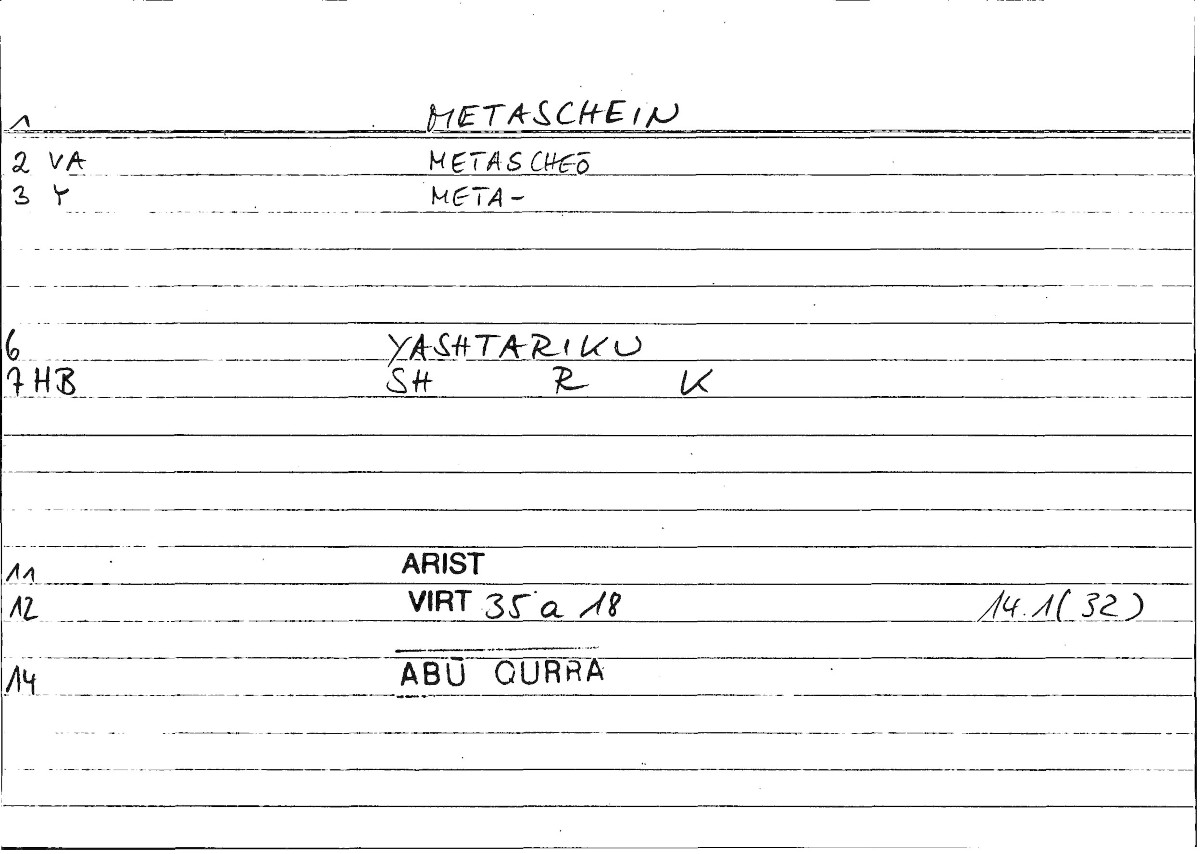 1 METASCHEIN
2 VA METASCHEŌ
3 Y META-
6 YASHTARIKU
7 HB SH R K
11 ARIST
12 VIRT 35 a 18 14.1(32)
14 ABŪ QURRA